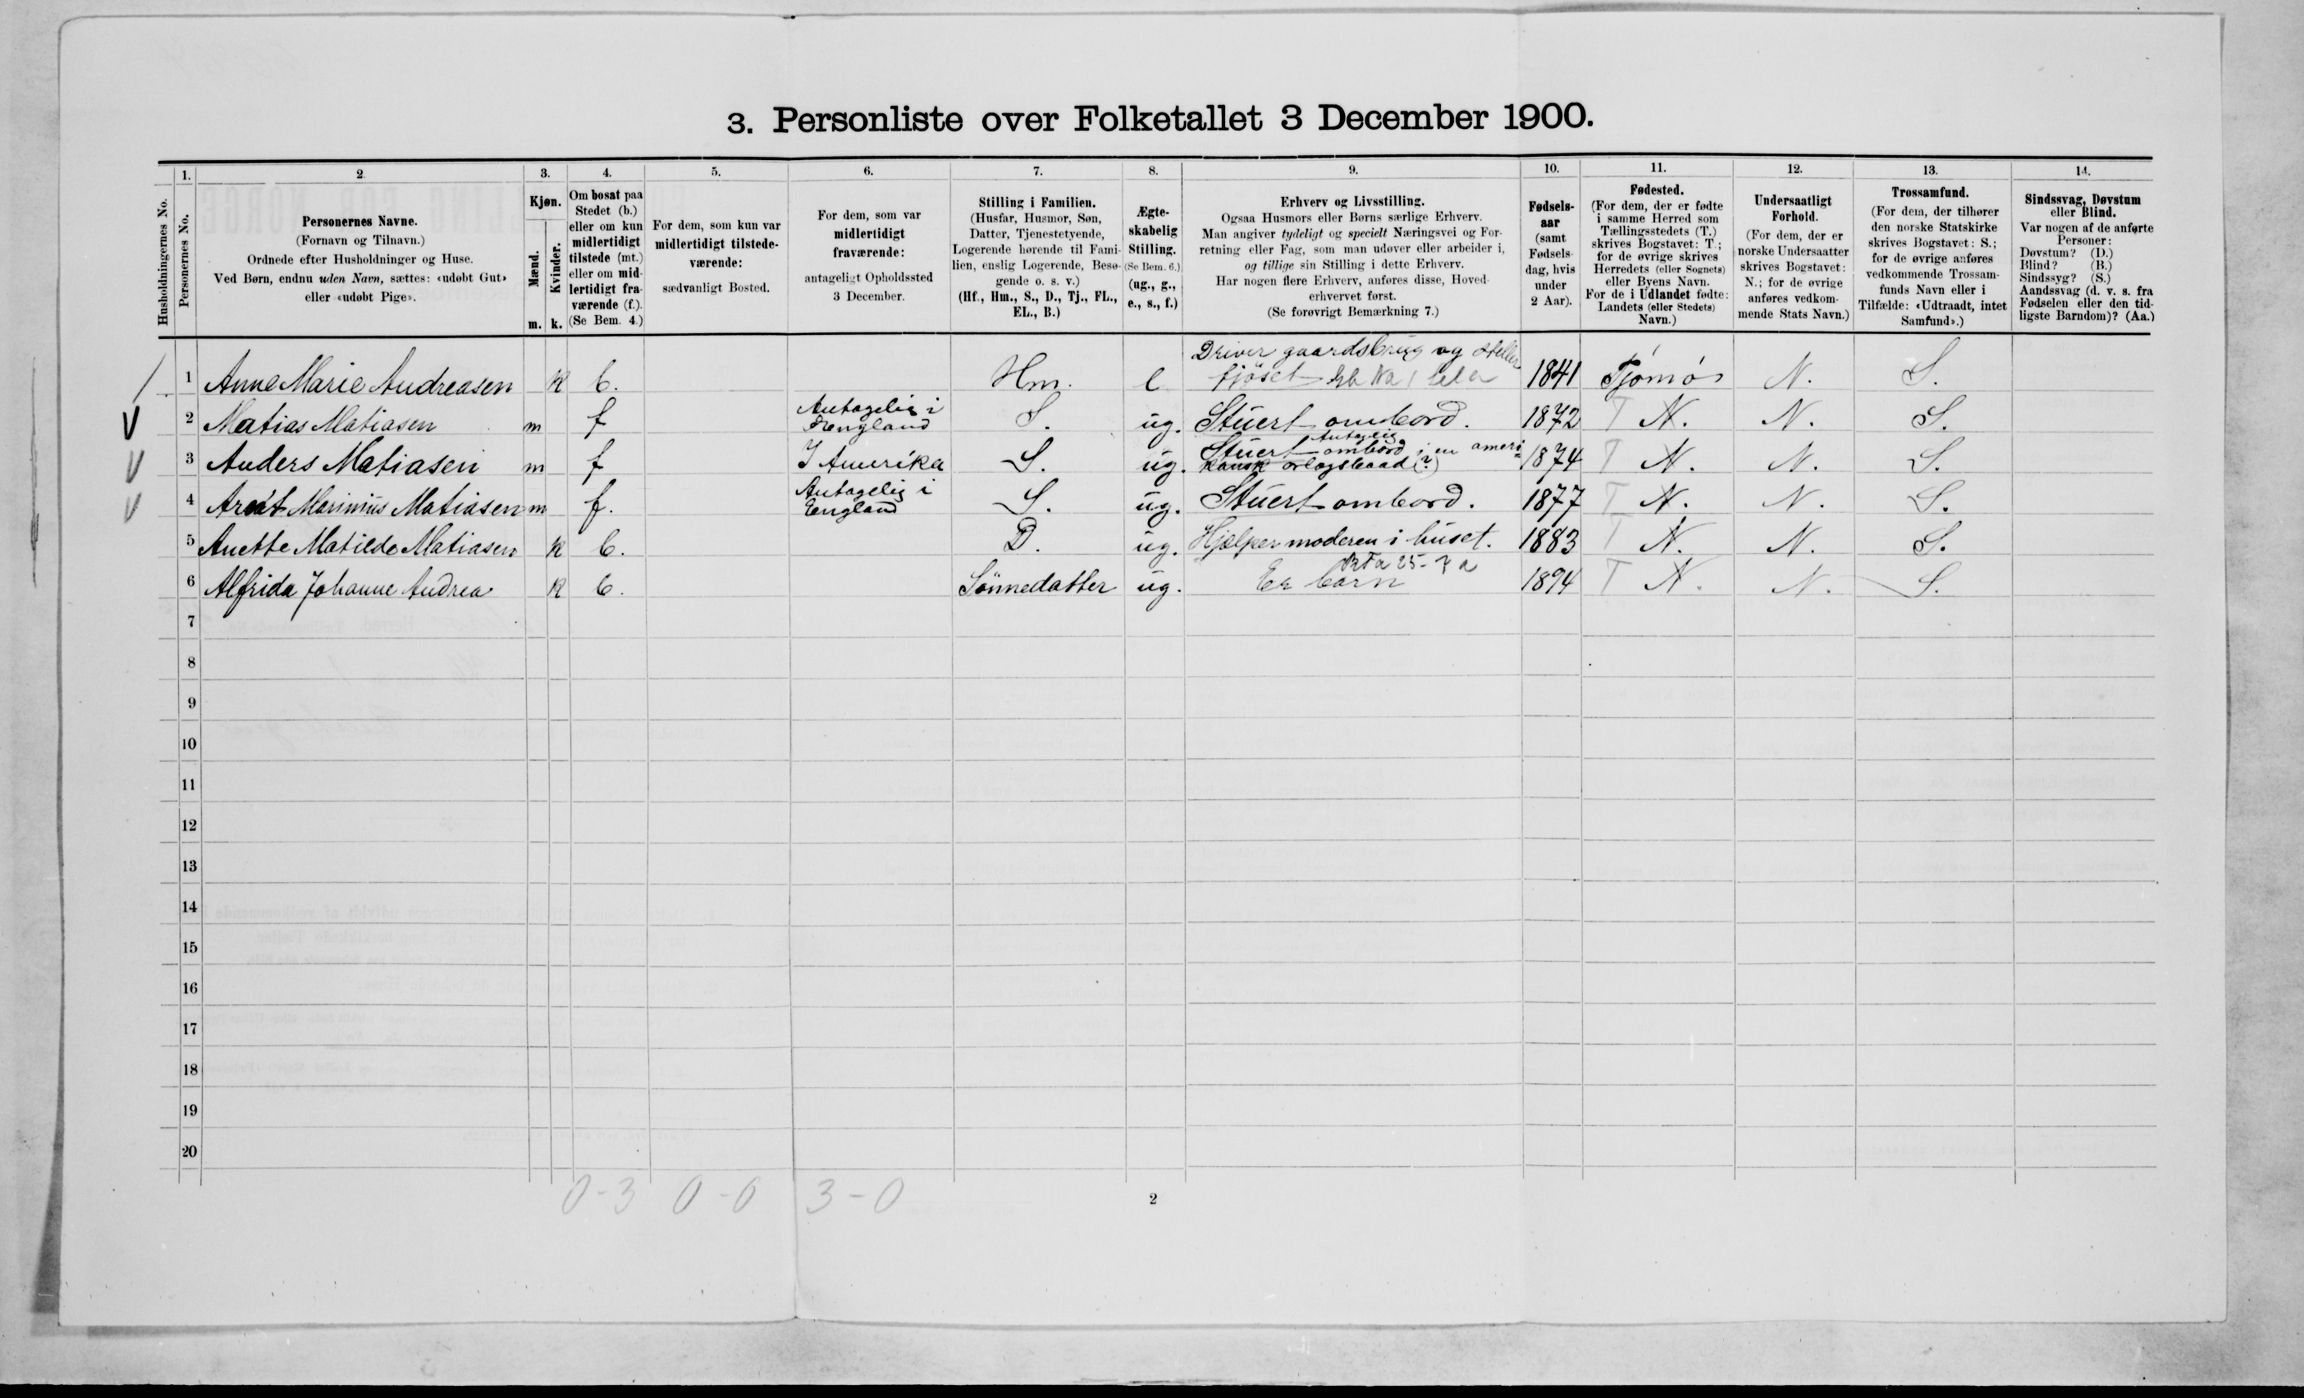 3. Personliste over Folketallet 3 December 1900.
1. 2. 3. 4. 5. 6. 7. 8. 9. 10. 11. 12. 13. 14.
Husholdningernes No.
Personernes No.
Personernes Navne.
(Fornavn og Tilnavn.)
Ordnede efter Husholdninger og Huse.
Ved Børn, endnu uden Navn, sættes: «udøbt Gut»
eller «udøbt Pige».
Kjøn.
Mænd.
Kvinder.
m. k.
Om bosat paa
Stedet (b.)
eller om kun
midlertidigt
tilstede (mt.)
eller om mid-
lertidigt fra-
værende (f.).
(Se Bem. 4.)
For dem, som kun var
midlertidigt tilstede-
værende:
sædvanligt Bosted.
For dem, som var
midlertidigt
fraværende:
antageligt Opholdssted
3 December.
Stilling i Familien.
(Husfar, Husmor, Søn,
Datter, Tjenestetyende,
Logerende hørende til Fami-
lien, enslig Logerende, Besø-
gende o. s. v.)
(Hf., Hm., S., D., Tj., FL.,
EL., B.)
Ægte-
skabelig
Stilling.
(Se Bem. 6.)
(ug., g.,
e., s., f.)
Erhverv og Livsstilling.
Ogsaa Husmors eller Børns særlige Erhverv.
Man angiver tydeligt og specielt Næringsvei og For-
retning eller Fag, som man udøver eller arbeider i,
og tillige sin Stilling i dette Erhverv.
Har nogen flere Erhverv, anføres disse, Hoved-
erhvervet først.
(Se forøvrigt Bemærkning 7.)
Fødsels-
aar
(samt
Fødsels-
dag, hvis
under
2 Aar).
Fødested.
(For dem, der er fødte
i samme Herred som
Tællingsstedets (T.)
skrives Bogstavet: T.;
for de øvrige skrives
Herredets (eller Sognets)
eller Byens Navn.
For de i Udlandet fødte:
Landets (eller Stedets)
Navn.)
Undersaatligt
Forhold.
(For dem, der er
norske Undersaatter
skrives Bogstavet:
N.; for de øvrige
anføres vedkom-
mende Stats Navn.)
Trossamfund.
(For dem, der tilhører
den norske Statskirke
skrives Bogstavet: S.;
for de øvrige anføres
vedkommende Trossam-
funds Navn eller i
Tilfælde: «Udtraadt, intet
Samfund».)
Sindssvag, Døvstum
eller Blind.
Var nogen af de anførte
Personer:
Døvstum? (D.)
Blind? (B.)
Sindssyg? (S.)
Aandssvag (d. v. s. fra
Fødselen eller den tid-
ligste Barndom)? (Aa.)
Driver gaardsbrug og steller
1 Anne Marie Andreasen k b. Hm. e fjøset 1841 Tjømø N. S.
Antagelig i
2 Matias Matiasen m f England S. ug. Stuert ombord. 1872 T N. N. S.
Antagelig
3 Anders Matiasen m f I Amerika S. ug. Stuert ombord i en ameri-
kansk orlogsbaad (?) 1874 T N. N. S.
Antagelig i
4 Arent Marinius Matiasen m f. England S. ug. Stuert ombord. 1877 T N. N. S.
5 Anette Matilde Matiasen k b. D. ug. Hjælper moderen i huset. 1883 T N. N. S.
6 Alfrida Johanne Andrea k b. Sønnedatter ug. Er barn 1894 T N. N. S.
7
8
9
10
11
12
13
14
15
16
17
18
19
20
0-3 0-0 3-0
2